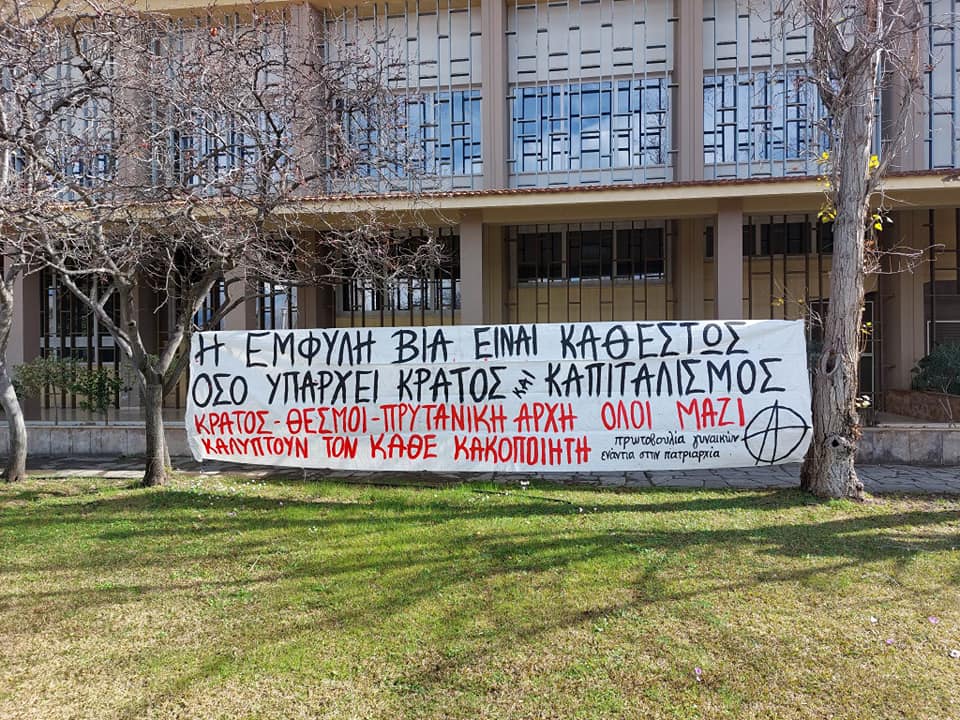 Η ΕΜΦΥΛΗ ΒΙΑ ΕΙΝΑΙ ΚΑΘΕΣΤΩΣ
ΟΣΟ ΥΠΑΡΧΕΙ ΚΡΑΤΟΣ ΚΑΙ ΚΑΠΙΤΑΛΙΣΜΟΣ
ΚΡΑΤΟΣ - ΘΕΣΜΟΙ - ΠΡΥΤΑΝΙΚΗ ΑΡΧΗ ΟΛΟΙ ΜΑΖΙ
ΚΑΛΥΠΤΟΥΝ ΤΟΝ ΚΑΘΕ ΚΑΚΟΠΟΙΗΤΗ
πρωτοβουλία γυναικών
ενάντια στην πατριαρχία